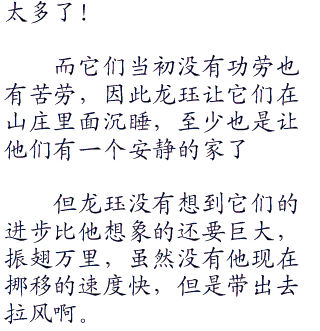 太多了！
而它们当初没有功劳也
有苦劳，因此龙珏让它们在
山庄里面沉睡，至少也是让
他们有一个安静的家了
但龙珏没有想到它们的
进步比他想象的还要巨大，
振翅万里，虽然没有他现在
挪移的速度快，但是带出去
拉风啊。